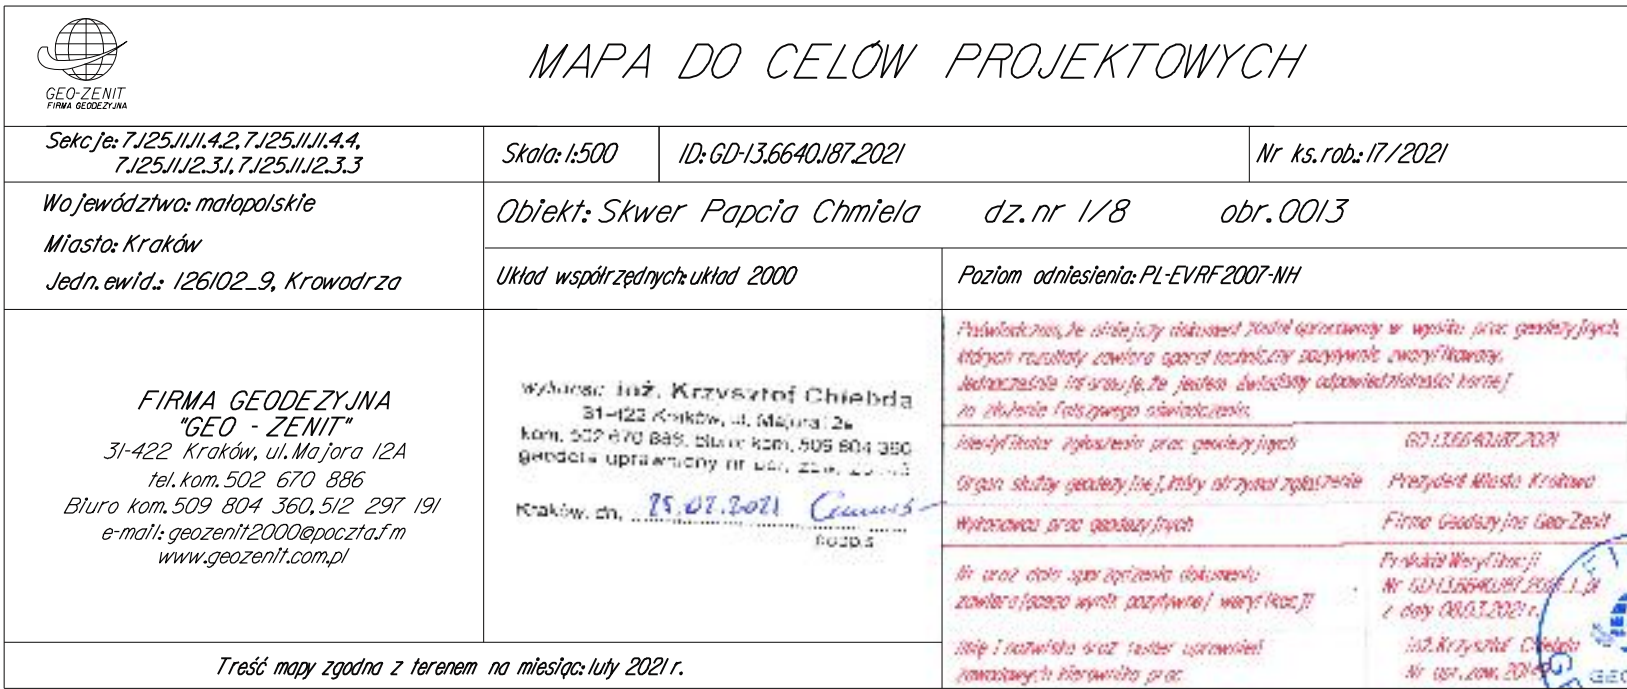 GEO-ZENIT
FIRMA GEODEZYJNA
MAPA DO CELÓW PROJEKTOWYCH
Sekcje: 7.125.11.11.4.2, 7.125.11.11.4.4,
7.125.11.12.3.1, 7.125.11.12.3.3
Skala: 1:500
ID: GD-13.6640.187.2021
Nr ks.rob.: 17/2021
Województwo: małopolskie
Miasto: Kraków
Jedn. ewid.: 126102_9, Krowodrza
Obiekt: Skwer Papcia Chmiela dz.nr 1/8 obr.0013
Układ współrzędnych: układ 2000
Poziom odniesienia: PL-EVRF2007-NH
FIRMA GEODEZYJNA
"GEO - ZENIT"
31-422 Kraków, ul.Majora 12A
tel.kom. 502 670 886
Biuro kom. 509 804 360, 512 297 191
e-mail: geozenit2000@poczta.fm
www.geozenit.com.pl
inż. Krzysztof Chlebda
31-422 Kraków, ul. Majora
kom. 502 670 886, biuro kom. 509 804 360
geodeta uprawniony nr upr. zaw.
Kraków, dn. 25.02.2021
Podpis
Poświadczam, że niniejszy dokument został opracowany w wyniku prac geodezyjnych,
których rezultaty zawiera operat techniczny pozytywnie zweryfikowany.
Jednocześnie informuję, że jestem świadomy odpowiedzialności karnej
za złożenie fałszywego oświadczenia.
Identyfikator zgłoszenia prac geodezyjnych GD-13.6640.187.2021
Organ służby geodezyjnej, który otrzymał zgłoszenie Prezydent Miasta Krakowa
Wykonawca prac geodezyjnych Firma Geodezyjna Geo-Zenit
Nr oraz data sporządzenia dokumentu
zawierającego wynik pozytywnej weryfikacji
Protokół Weryfikacji
Nr GD-13.6640.187.2021_1_pl
z daty 08.03.2021 r.
Imię i nazwisko oraz numer uprawnień
zawodowych kierownika prac
inż. Krzysztof Chlebda
Nr upr. zaw.
Treść mapy zgodna z terenem na miesiąc: luty 2021 r.